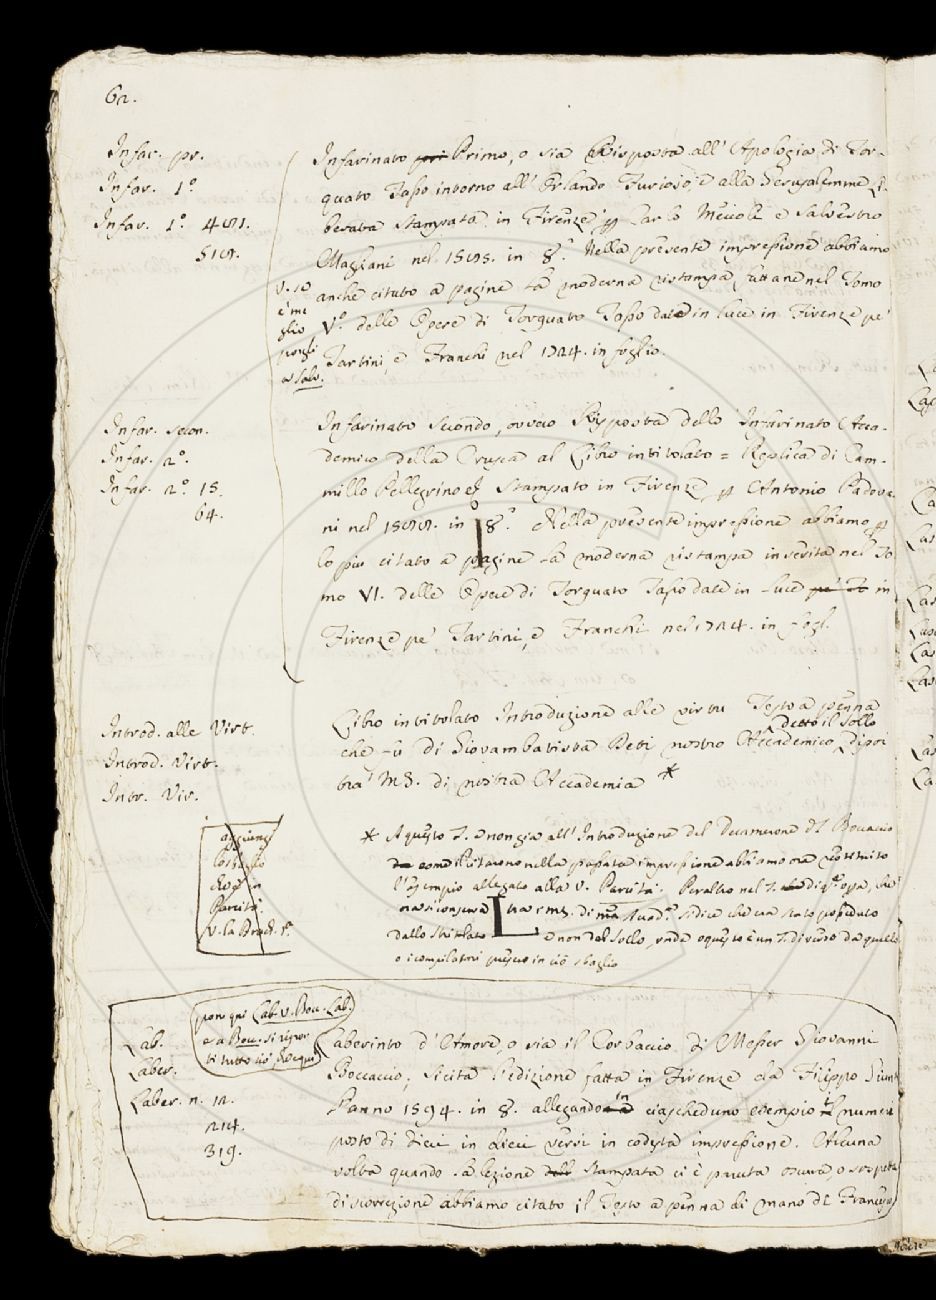 62.
Infar. pr.
Infar. 1.º
Infar. 1.º 481.
518.
Infarinato pri Primo, o sia Risposta all' Apologia di Tor-
quato Tasso intorno all' Orlando Furioso, e alla Gerusalemme Li-
berata Stampata in Firenze p Carlo Meccoli e Salvestro
Magliani nel 1585. in 8.º Nella presente impressione abbiamo
anche citato a pagine la moderna ristampa fattane nel Tomo
Vº. delle Opere di Torquato Tasso date in luce in Firenze pe'
Tartini, e Franchi nel 1724. in foglio.
v. se
è me
glio
porgli
a Salv.
Infar. secon.
Infar. 2.º
Infar. 2.º 15.
64.
Infarinato Secondo, ovvero Risposta dello Infarinato Acca-
demico della Crusca al Libro intitolato = Replica di Cam-
millo Pellegrino Stampato in Firenze p Antonio Padova-
ni nel 1588. in 8.º Nella presente impressione abbiamo p
lo più citato a pagine la moderna ristampa inserita nel To
mo VI. delle Opere di Torquato Tasso date in luce pe' To in
Firenze pe' Tartini, e Franchi nel 1724. in fogl.
Introd. alle Virt.
Introd. Virt.
Intr. Vir.
Libro intitolato Introduzione alle virtù Testo a penna
detto il Sollo
che fu di Giovambatista Deti, nostro Accademico, dipoi
tra' MS. di nostra Accademia *
aggiungi
Parcità
v. la Brac. 1.ª
* A questo T. e non già all' Introduzione del Decamerone del Boccaccio
come citarono nella passata impressione abbiamo ora restituito
l'esempio allegato alla v. Parcità. Peraltro nel T. di q.ª opa, che
ora si conserva tra i ms. di nra Accad.ª si dice che era stato posseduto
dallo Stritolato e non dal Sollo, onde o questo è un T. diverso da quello
o i compilatori presero in ciò sbaglio
pone qui Lab. v. Bocc. Lab.
e a Bocc. si ripor
ti tutto ciò, ch'è qui
Lab.
Laber.
Laber. n. 12.
214.
319.
Laberinto d'Amore, o sia il Corbaccio di Messer Giovanni
Boccaccio; si cita l'edizione fatta in Firenze da Filippo Giunti
l'anno 1594. in 8. allegando in ciascheduno esempio i numeri
posto di dieci in dieci versi in codesta impressione. Alcuna
volta quando la lezione dell stampata ci è paruta oscura, o sospetta
di scorrezione abbiamo citato il Testo a penna di mano di Francesco